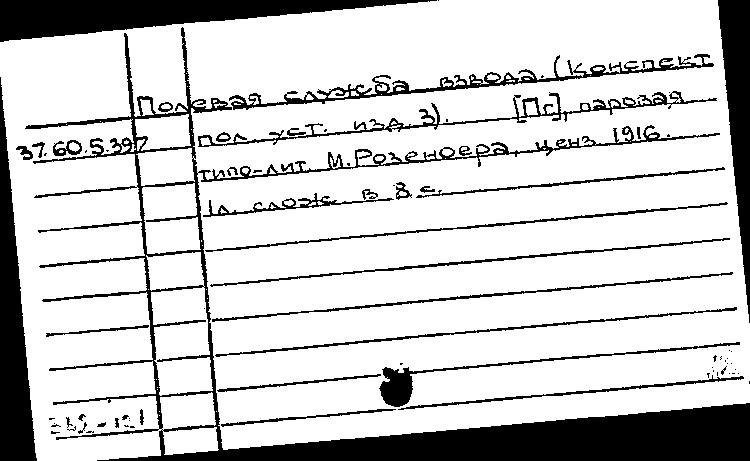 Полевая служба взвода. (Конспект
37.60.5.397 пол. уст. изд. 3). [Пс], паровая
типо-лит. М. Розеноера, ценз 1916.
1л. слож. в 8 с.